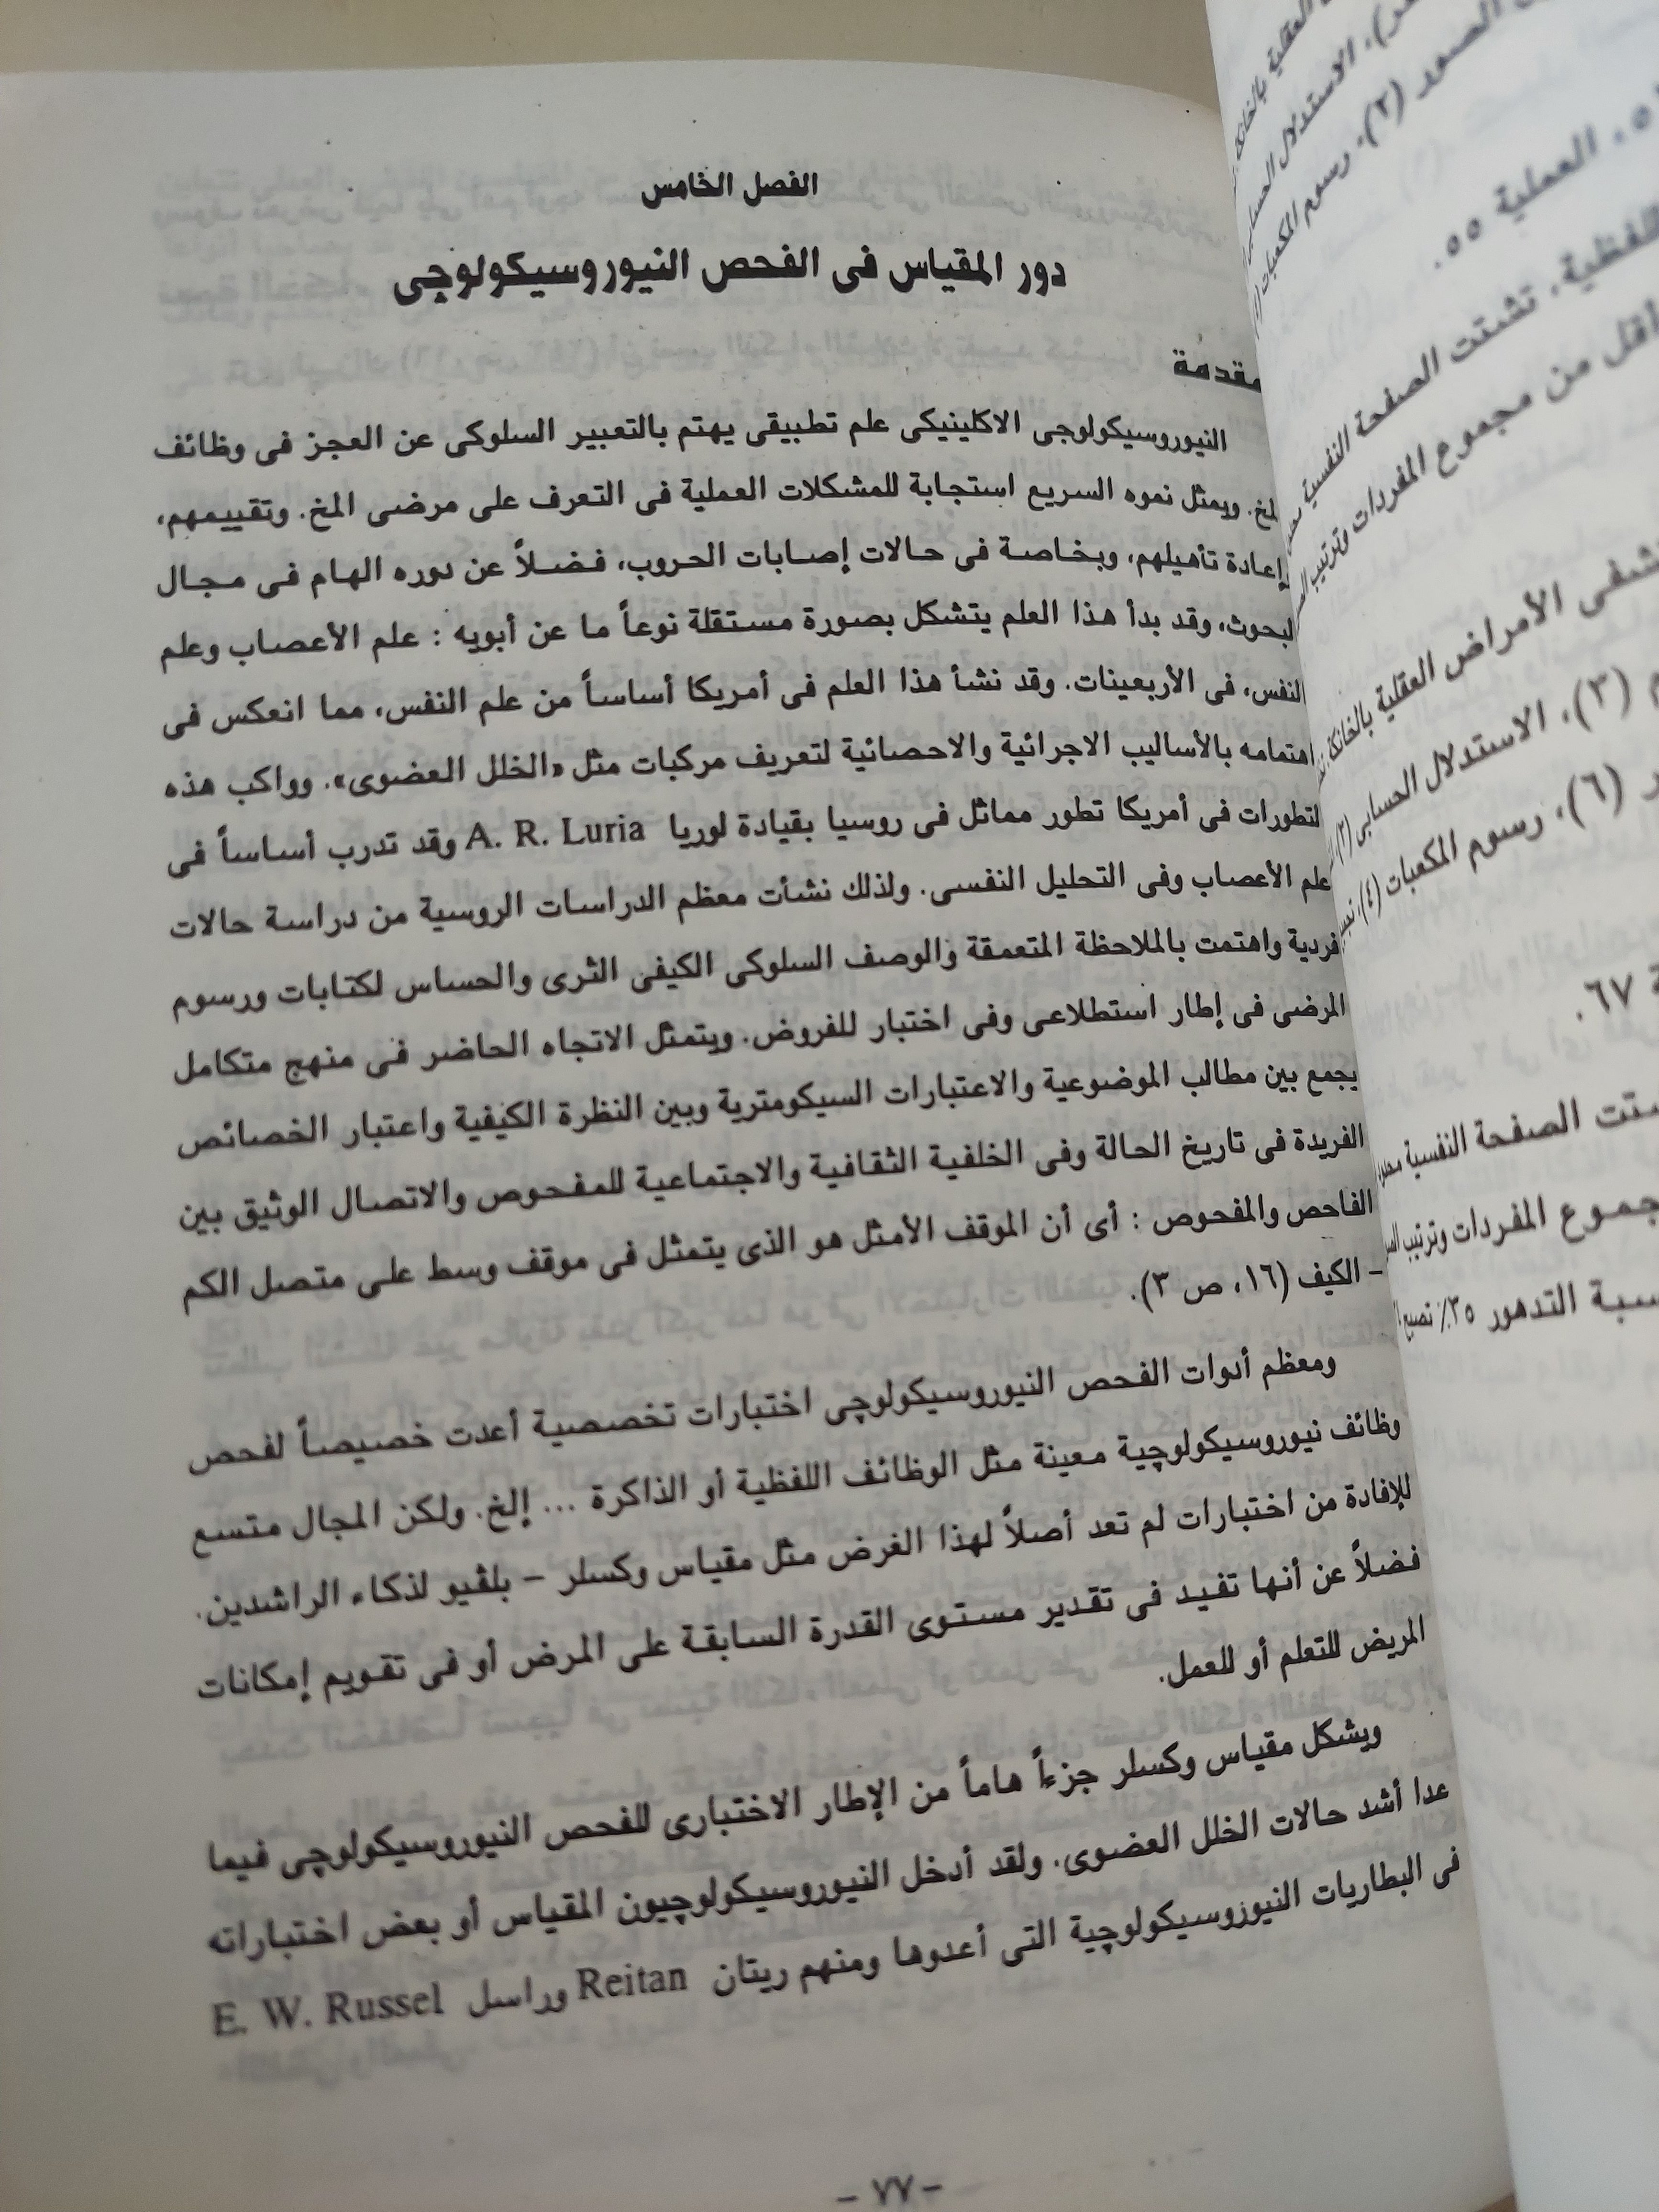 الفصل الخامس
دور المقياس فى الفحص النيوروسيكولوجى
مقدمة
النيوروسيكولوجى الاكلينيكى علم تطبيقى يهتم بالتعبير السلوكى عن العجز فى وظائف
المخ. ويمثل نموه السريع استجابة للمشكلات العملية فى التعرف على مرضى المخ. وتقييمهم،
إعادة تأهيلهم، وبخاصة فى حالات إصابات الحروب، فضلاً عن دوره الهام فى مجال
لبحوث، وقد بدأ هذا العلم يتشكل بصورة مستقلة نوعاً ما عن أبويه : علم الأعصاب وعلم
النفس، فى الأربعينات. وقد نشأ هذا العلم فى أمريكا أساساً من علم النفس، مما انعكس فى
اهتمامه بالأساليب الاجرائية والاحصائية لتعريف مركبات مثل «الخلل العضوى». وواكب هذه
لتطورات فى أمريكا تطور مماثل فى روسيا بقيادة لوريا A. R. Luria وقد تدرب أساساً فى
علم الأعصاب وفى التحليل النفسى. ولذلك نشأت معظم الدراسات الروسية من دراسة حالات
فردية واهتمت بالملاحظة المتعمقة والوصف السلوكى الكيفى الثرى والحساس لكتابات ورسوم
المرضى فى إطار استطلاعى وفى اختبار للفروض. ويتمثل الاتجاه الحاضر فى منهج متكامل
يجمع بين مطالب الموضوعية والاعتبارات السيكومترية وبين النظرة الكيفية واعتبار الخصائص
الفريدة فى تاريخ الحالة وفى الخلفية الثقافية والاجتماعية للمفحوص والاتصال الوثيق بين
الفاحص والمفحوص : أى أن الموقف الأمثل هو الذى يتمثل فى موقف وسط على متصل الكم
– الكيف (١٦، ص ٣).
ومعظم أدوات الفحص النيوروسيكولوچى اختبارات تخصصية أعدت خصيصاً لفحص
وظائف نيوروسيكولوچية معينة مثل الوظائف اللفظية أو الذاكرة ... إلخ. ولكن المجال متسع
للإفادة من اختبارات لم تعد أصلاً لهذا الغرض مثل مقياس وكسلر – بلڤيو لذكاء الراشدين.
فضلاً عن أنها تفيد فى تقدير مستوى القدرة السابقة على المرض أو فى تقويم إمكانات
المريض للتعلم أو للعمل.
ويشكل مقياس وكسلر جزءاً هاماً من الإطار الاختبارى للفحص النيوروسيكولوچى فيما
عدا أشد حالات الخلل العضوى. ولقد أدخل النيوروسيكولوچيون المقياس أو بعض اختباراته
فى البطاريات النيوروسيكولوچية التى أعدوها ومنهم ريتان Reitan وراسل E. W. Russel
– ٧٧ –
الصور (٢)، رسوم المكعبات
العملية ٥٥.
تشتت الصفحة النفسية
اقل من مجموع المفردات وترتيب
الأمراض العقلية بالخانكة
(٣)، الاستدلال الحسابى
(٦)، رسوم المكعبات (٤)،
٦٧.
الصفحة النفسية
المفردات وترتيب
التدهور ٣٥٪